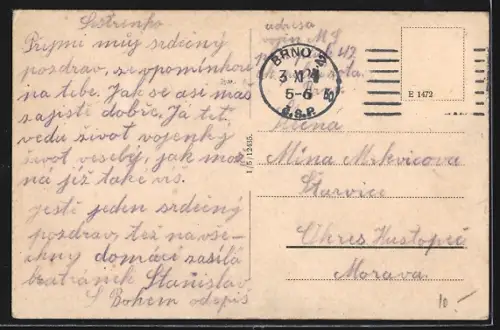 Sestřenko
Přejmi můj srdečný
pozdrav, ze vpomínkou
na tebe. Jak se asi máš
zajisté dobře. Já teť
vedu život vojenký
život veselý, jak mož
ná již také víš.
Jestě jeden srdečný
pozdrav, též na vše-
chny domácí zasílá
bratránek Stanislav,
S Bohem odepiš
adresa
vojín M J
BRNO
3 XI
5-6
Č.S.P.
E 1472
1/5/12435.
Slečna
Mina Mrkvicova
Starvice
Okres Hustopeč
Morava
10.-